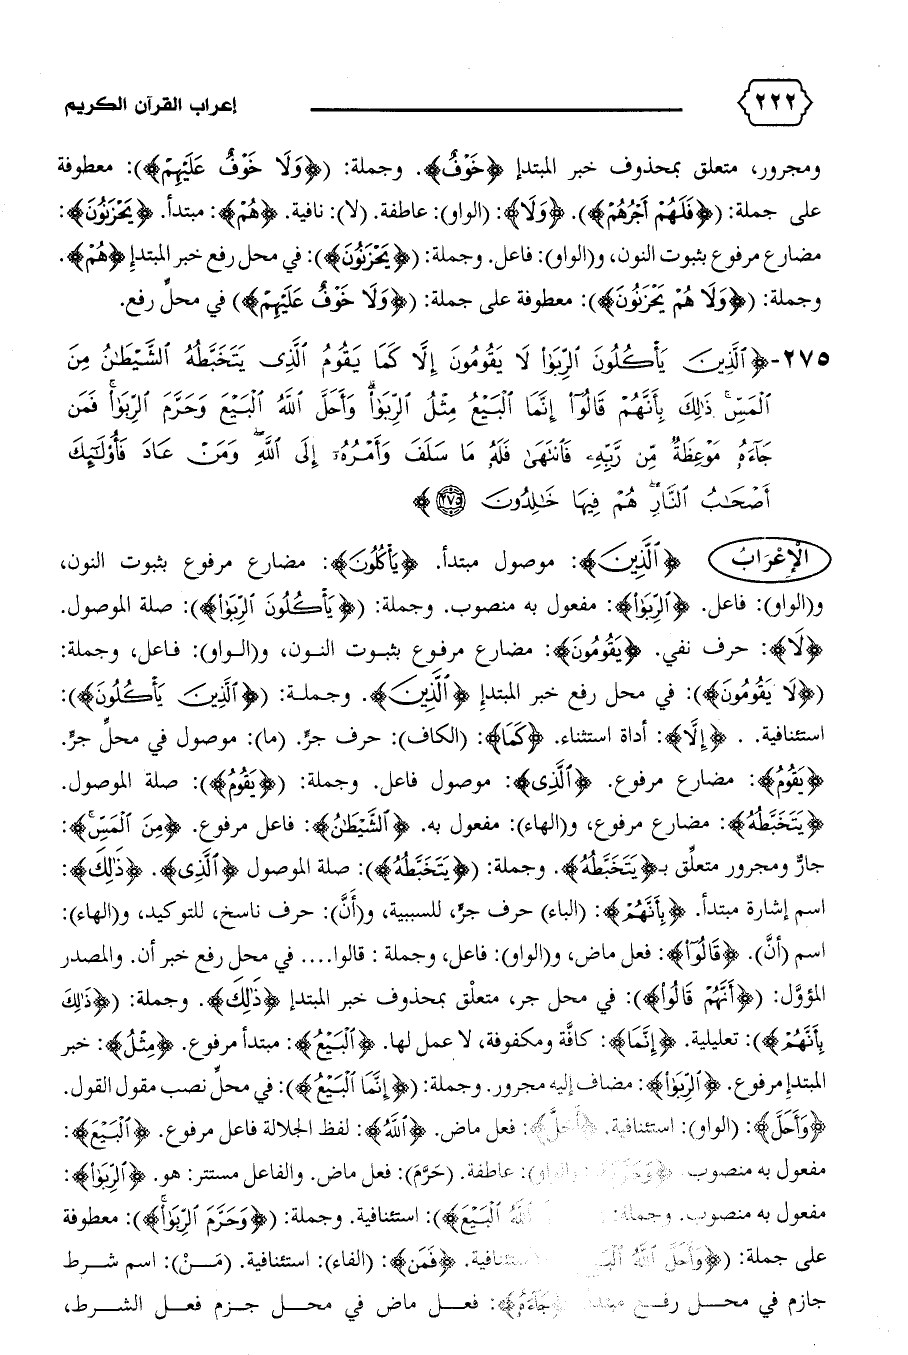 ٢٢٢ إعراب القرآن الكريم
ومجرور، متعلق بمحذوف خبر المبتدإ ﴿خَوْفٌ﴾. وجملة: (﴿وَلَا خَوْفٌ عَلَيْهِمْ﴾): معطوفة
على جملة: (﴿فَلَهُمْ أَجْرُهُمْ﴾). ﴿وَلَا﴾: (الواو): عاطفة. (لا): نافية. ﴿هُمْ﴾: مبتدأ. ﴿يَحْزَنُونَ﴾:
مضارع مرفوع بثبوت النون، و(الواو): فاعل. وجملة: (﴿يَحْزَنُونَ﴾): في محل رفع خبر المبتدإ ﴿هُمْ﴾.
وجملة: (﴿وَلَا هُمْ يَحْزَنُونَ﴾): معطوفة على جملة: (﴿وَلَا خَوْفٌ عَلَيْهِمْ﴾) في محلِّ رفع.
٢٧٥- ﴿الَّذِينَ يَأْكُلُونَ الرِّبَوٰا۟ لَا يَقُومُونَ إِلَّا كَمَا يَقُومُ الَّذِى يَتَخَبَّطُهُ الشَّيْطَٰنُ مِنَ
الْمَسِّ ۚ ذَٰلِكَ بِأَنَّهُمْ قَالُوٓا۟ إِنَّمَا الْبَيْعُ مِثْلُ الرِّبَوٰا۟ ۗ وَأَحَلَّ اللَّهُ الْبَيْعَ وَحَرَّمَ الرِّبَوٰا۟ ۚ فَمَن
جَآءَهُۥ مَوْعِظَةٌ مِّن رَّبِّهِۦ فَانتَهَىٰ فَلَهُۥ مَا سَلَفَ وَأَمْرُهُۥٓ إِلَى اللَّهِ ۖ وَمَنْ عَادَ فَأُو۟لَٰٓئِكَ
أَصْحَٰبُ النَّارِ ۖ هُمْ فِيهَا خَٰلِدُونَ ۝٢٧٥﴾
الْإِعْرَابُ ﴿الَّذِينَ﴾: موصول مبتدأ. ﴿يَأْكُلُونَ﴾: مضارع مرفوع بثبوت النون،
و(الواو): فاعل. ﴿الرِّبَوٰا۟﴾: مفعول به منصوب. وجملة: (﴿يَأْكُلُونَ الرِّبَوٰا۟﴾): صلة الموصول.
﴿لَا﴾: حرف نفي. ﴿يَقُومُونَ﴾: مضارع مرفوع بثبوت النون، و(الواو): فاعل، وجملة:
(﴿لَا يَقُومُونَ﴾): في محل رفع خبر المبتدإِ ﴿الَّذِينَ﴾. وجملة: (﴿الَّذِينَ يَأْكُلُونَ﴾):
استئنافية. . ﴿إِلَّا﴾: أداة استثناء. ﴿كَمَا﴾: (الكاف): حرف جرٍّ. (ما): موصول في محلِّ جرٍّ.
﴿يَقُومُ﴾: مضارع مرفوع. ﴿الَّذِى﴾: موصول فاعل. وجملة: (﴿يَقُومُ﴾): صلة الموصول.
﴿يَتَخَبَّطُهُ﴾: مضارع مرفوع، و(الهاء): مفعول به. ﴿الشَّيْطَٰنُ﴾: فاعل مرفوع. ﴿مِنَ الْمَسِّ ۚ﴾:
جارٌّ ومجرور متعلِّق بـ﴿يَتَخَبَّطُهُ﴾. وجملة: (﴿يَتَخَبَّطُهُ﴾): صلة الموصول ﴿الَّذِى﴾. ﴿ذَٰلِكَ﴾:
اسم إشارة مبتدأ. ﴿بِأَنَّهُمْ﴾: (الباء) حرف جرٍّ، للسببية، و(أَنَّ): حرف ناسخ، للتوكيد، و(الهاء):
اسم (أنَّ). ﴿قَالُوٓا۟﴾: فعل ماض، و(الواو): فاعل، وجملة : قالوا.... في محل رفع خبر أن. والمصدر
المؤوَّل: (﴿أَنَّهُمْ قَالُوا۟﴾): في محل جر، متعلِّق بمحذوف خبر المبتدإ ﴿ذَٰلِكَ﴾. وجملة: (﴿ذَٰلِكَ
بِأَنَّهُمْ﴾): تعليلية. ﴿إِنَّمَا﴾: كافَّة ومكفوفة، لا عمل لها. ﴿الْبَيْعُ﴾: مبتدأ مرفوع. ﴿مِثْلُ﴾: خبر
المبتدإ مرفوع. ﴿الرِّبَوٰا۟﴾: مضاف إليه مجرور. وجملة: (﴿إِنَّمَا الْبَيْعُ﴾): في محلِّ نصب مقول القول.
﴿وَأَحَلَّ﴾: (الواو): استئنافية. ﴿أَحَلَّ﴾: فعل ماض. ﴿اللَّهُ﴾: لفظ الجلالة فاعل مرفوع. ﴿الْبَيْعَ﴾:
مفعول به منصوب. ﴿وَحَرَّمَ (الواو): عاطفة. (حَرَّمَ): فعل ماض. والفاعل مستتر: هو. ﴿الرِّبَوٰا۟﴾:
مفعول به منصوب. وجملة: اللَّهُ الْبَيْعَ﴾): استئنافية. وجملة: (﴿وَحَرَّمَ الرِّبَوٰا۟ ۚ﴾): معطوفة
على جملة: (﴿وَأَحَلَّ اللَّهُ استئنافية. ﴿فَمَن﴾: (الفاء): استئنافية. (مَنْ): اسم شرط
جازم في محل رفع مبتدأ. ﴿جَآءَهُۥ﴾: فعل ماض في محل جزم فعل الشرط،